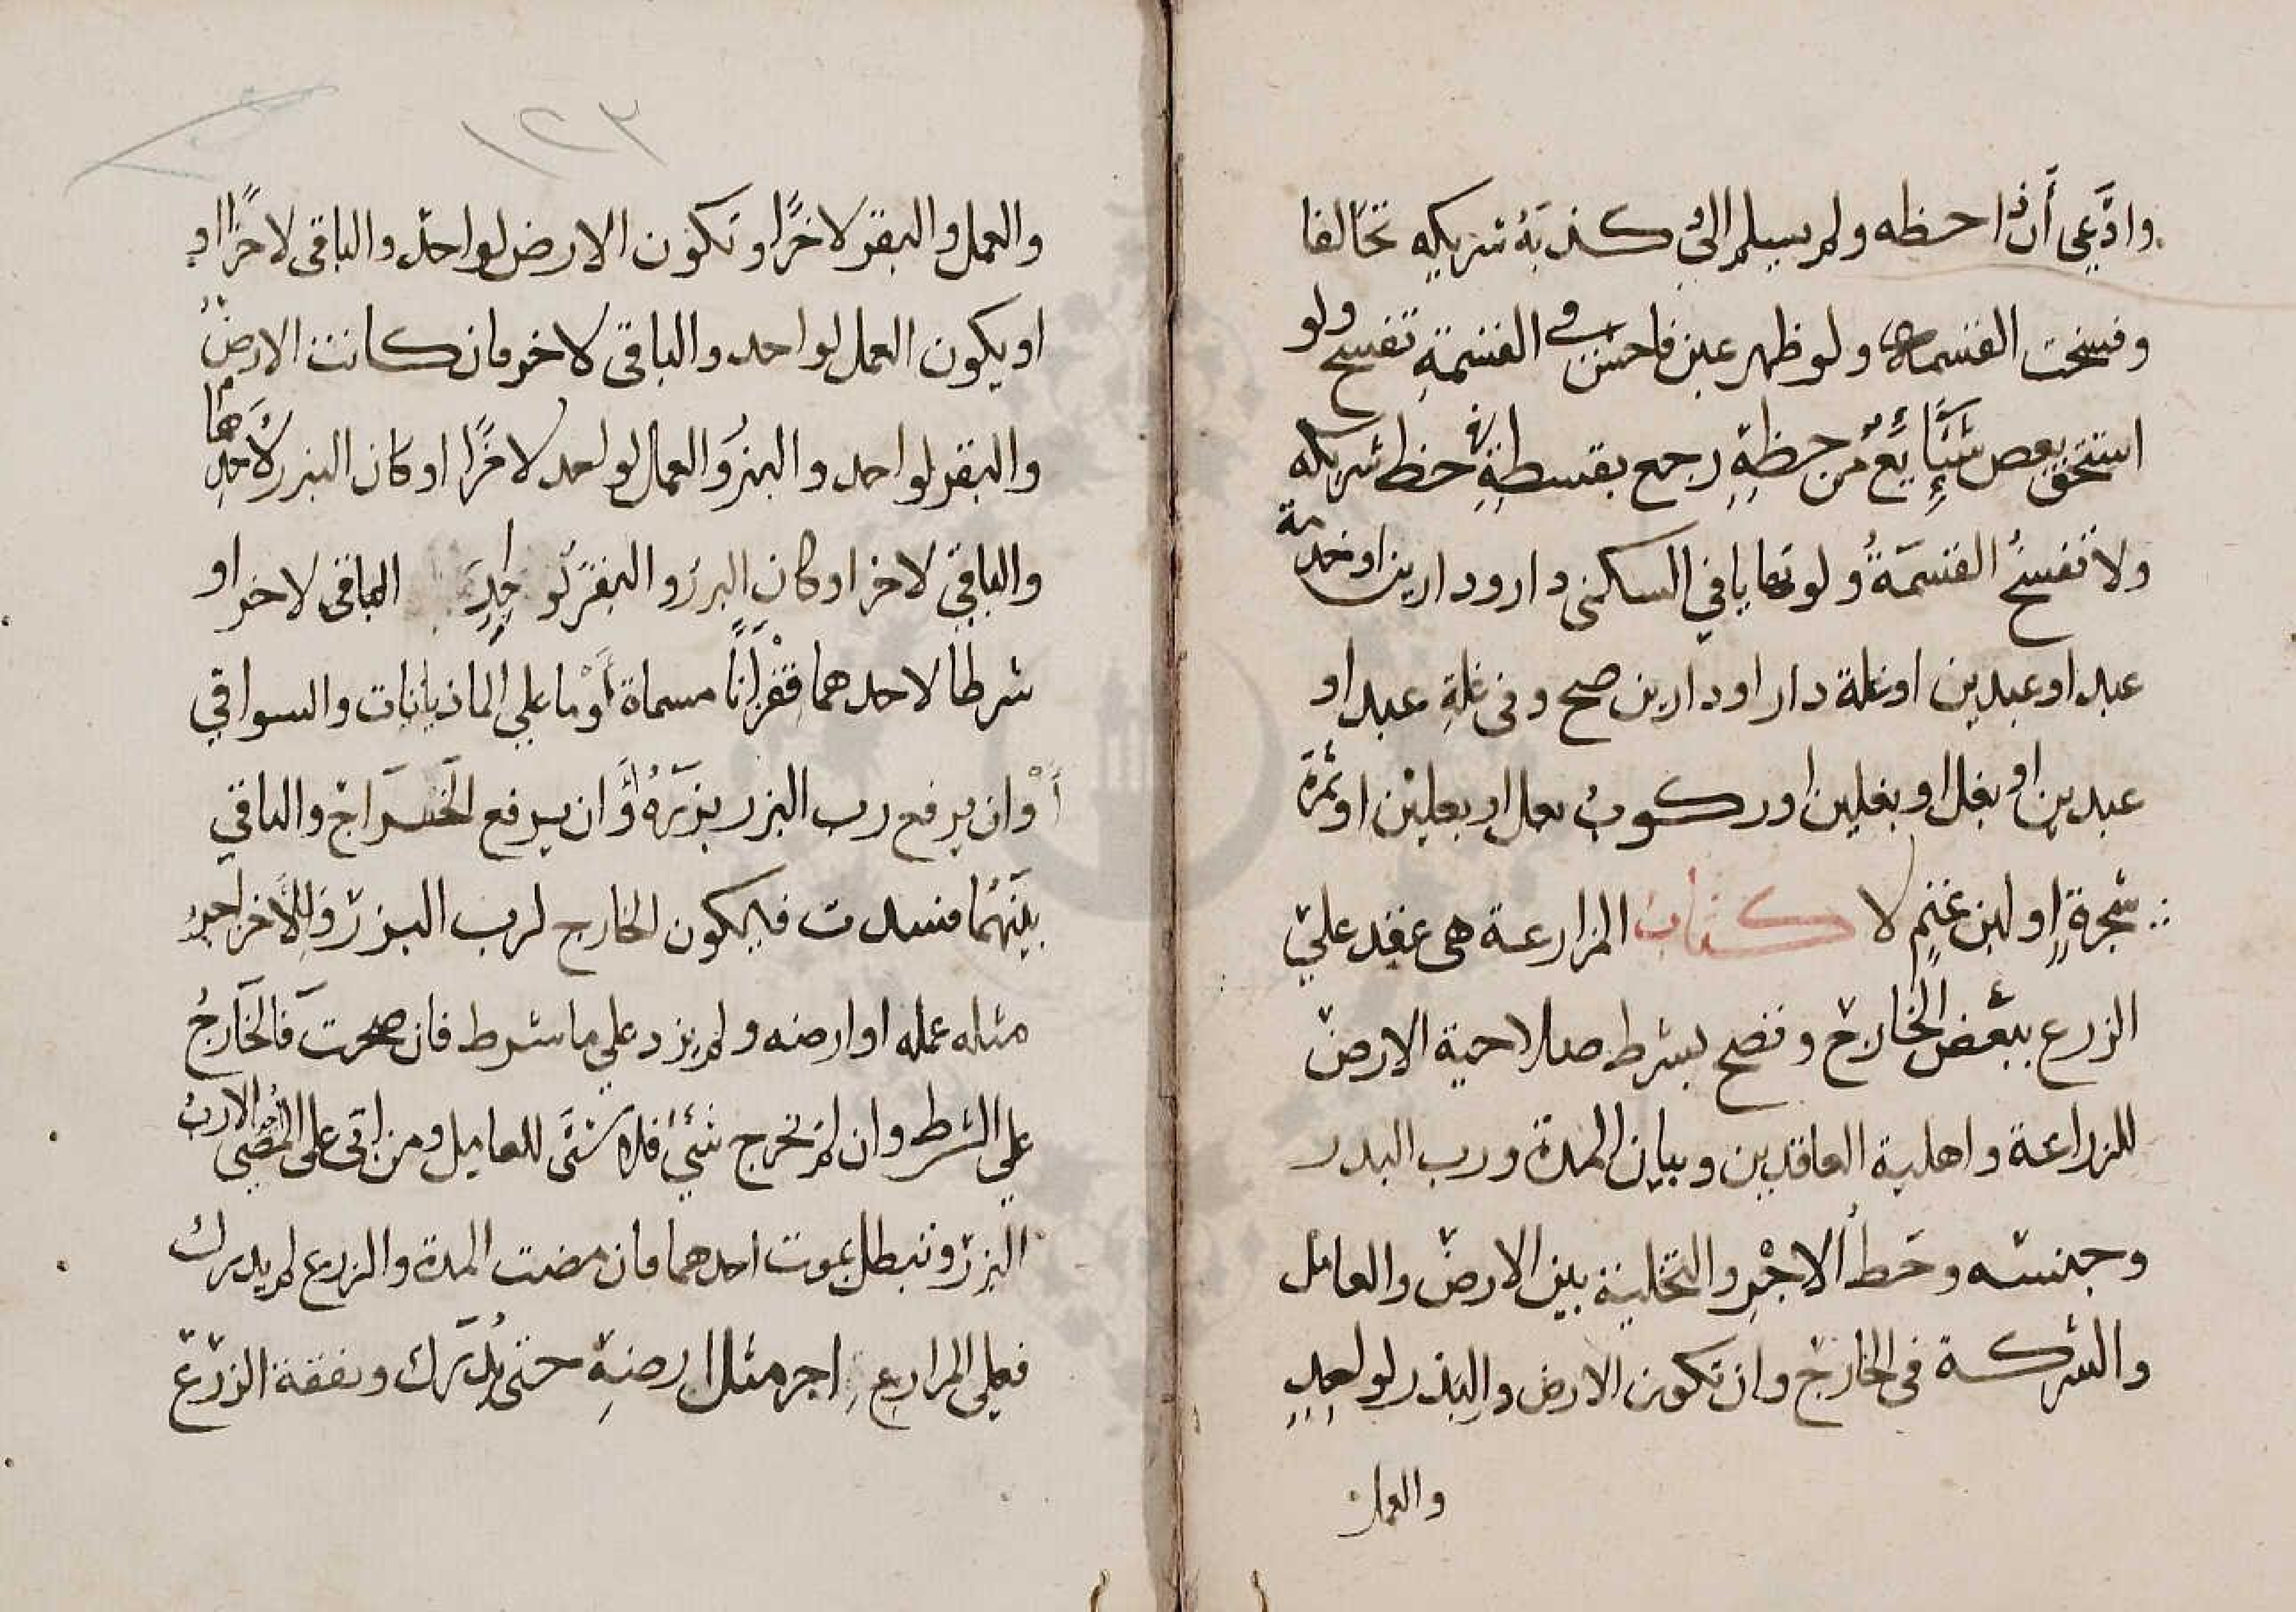 وادَّعي أن ذا حظه ولم يسلم اليّ كذبَهُ شريكه تحالفا
وفسخت القسمة ولو ظهر غبن فاحش في القسمةِ تفسخ ولو
استحق بعض شائع من حظهِ رجع بقسطهِ في حظ شريكه
ولا تفسخُ القسمَةُ ولو تهايا في السكنى دار ودارين او خدمة
عبد او عبدين او غلة دار او دارين صح وفي غلةِ عبد او
عبدين او بغل او بغلين او ركوب بغل او بغلين او ثمرة
شجرةٍ او لبن غنمٍ لا كتاب المزارعة هي عقد علي
الزرع ببعض الخارج وتصح بشرط صلاحية الارض
للزراعة واهلية العاقدين وبيان المدة ورب البدر
وجنسه وحَط الاخرِ والتخلية بين الارض والعامل
والشركة في الخارج وان تكون الارض والبذر لواحدٍ
والعمل
١٢٣
والعمل والبقر لاخرًا وتكون الارض لواحد والباقي لاخرًا او
او يكون العمل لواحد والباقي لاخر فان كانت الارضُ
والبقر لواحد والبزرُ والعمل لواحد لاخرًا او كان البزر لاحدِهما
والباقي لاخر او كان البرز والبقر لو حِدِ الباقي لاخر او
شرطا لاحدهما قفزانًا مسماة أوْ ما علي الماذيانات والسواقي
أوْ ان يرفع رب البزر بزرَهُ أوَ ان يرفع الخَراج والباقي
بينَهُما فسدت فيكون الخارج لرب البزر وللأخر اجر
مثله عمله او ارضه ولم يزد علي ما شرط فان صحت فالخَارجُ
علي الشرط وان لم تخرج شيئ فلا شئَ للعامِل ومن ابى على المُضي الا ربُ
البزر وتبطل بموت احدهما فان مضت المدة والزرع لم يدرك
فعلي المزارِعِ اجر مثل ارضهِ حتى يُدْرَك ونفقة الزرع